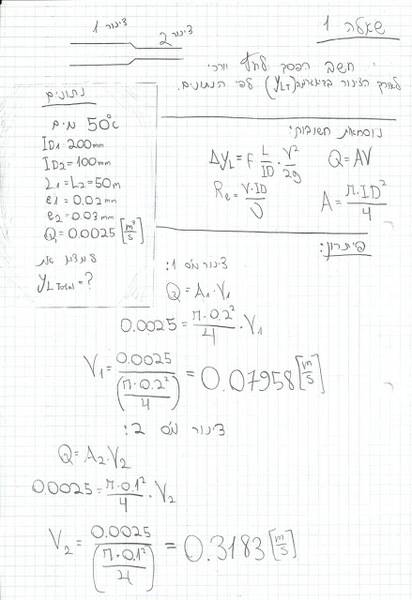 שאלה 1
צינור 1
צינור 2
חשב הפסד לחץ
לאורך הצינור (yLT) לפי הנתונים.
נתונים
מים 50°c
ID1=200mm
ID2=100mm
L1=L2=50m
e1=0.02mm
e2=0.03mm
Q=0.0025 [m³/s]
למצוא את
yL Total=?
נוסחאות חשובות:
ΔyL = F L/ID · V²/2g
Q=AV
Re = V·ID/ν
A = π·ID²/4
פיתרון:
צינור מס 1:
Q=A1·V1
0.0025 = π·0.2²/4 · V1
V1 = 0.0025/(π·0.2²/4) = 0.07958 [m/s]
צינור מס 2:
Q=A2·V2
0.0025 = π·0.1²/4 · V2
V2 = 0.0025/(π·0.1²/4) = 0.3183 [m/s]